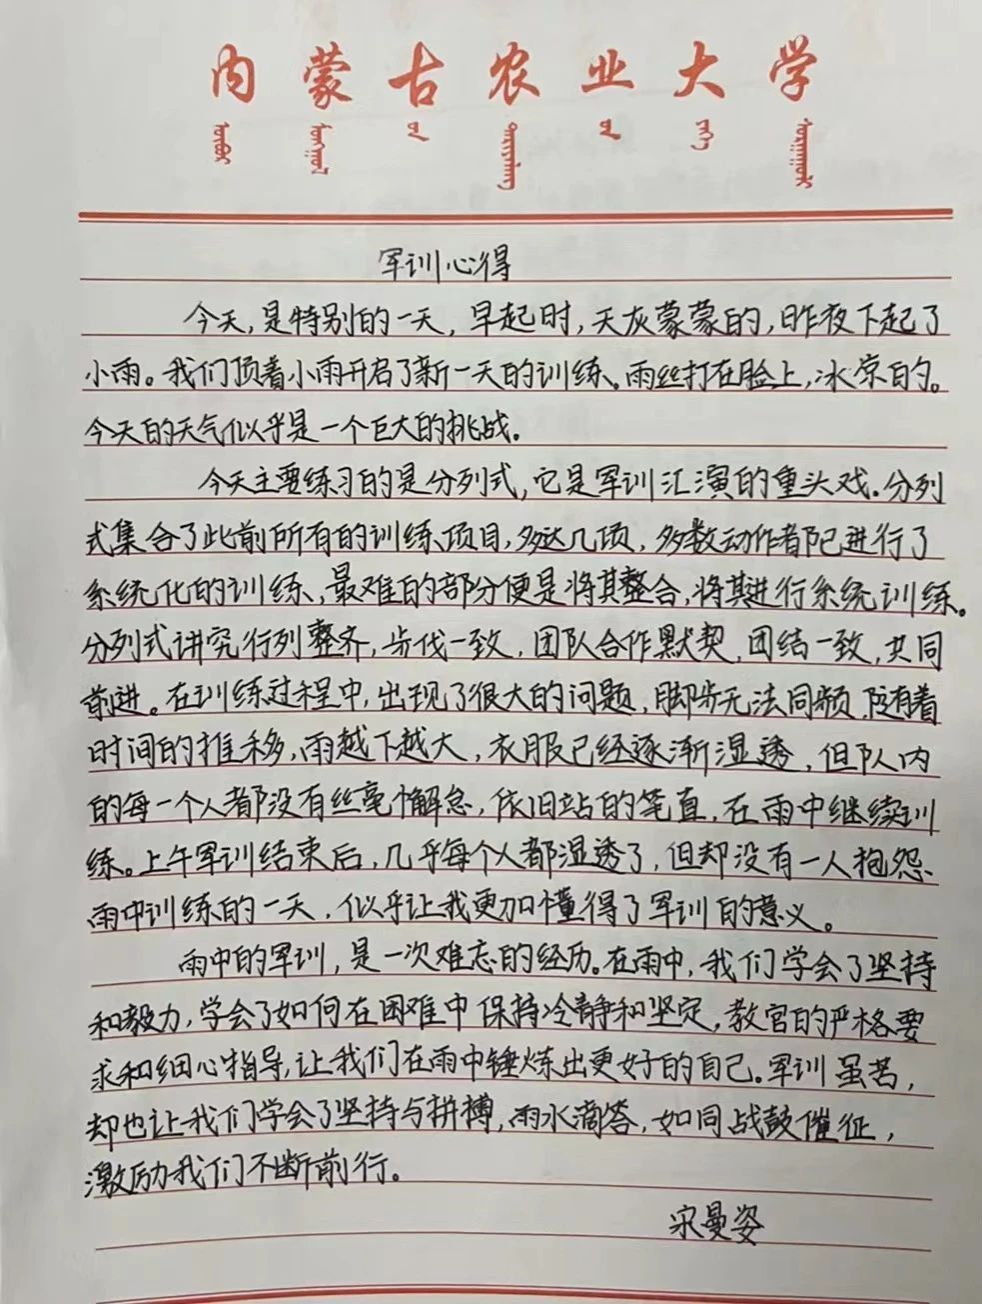 内蒙古农业大学
军训心得
今天,是特别的一天,早起时,天灰蒙蒙的,昨夜下起了
小雨。我们顶着小雨开启了新一天的训练。雨丝打在脸上,冰凉的。
今天的天气似乎是一个巨大的挑战。
今天主要练习的是分列式,它是军训汇演的重头戏.分列
式集合了此前所有的训练项目,多达几项,多数动作者都已进行了
系统化的训练,最难的部分便是将其整合,将其进行系统训练。
分列式讲究行列整齐,步伐一致,团队合作默契,团结一致,共同
前进。在训练过程中,出现了很大的问题,脚步无法同频,随着
时间的推移,雨越下越大,衣服已经逐渐湿透,但队内
的每一个人都没有丝毫懈怠,依旧站的笔直,在雨中继续训
练。上午军训结束后,几乎每个人都湿透了,但却没有一人抱怨.
雨中训练的一天,似乎让我更加懂得了军训的意义。
雨中的军训,是一次难忘的经历。在雨中,我们学会了坚持
和毅力,学会了如何在困难中保持冷静和坚定,教官的严格要
求和细心指导,让我们在雨中锤炼出更好的自己.军训虽苦,
却也让我们学会了坚持与拼搏,雨水滴答,如同战鼓催征,
激励我们不断前行。
宋曼姿